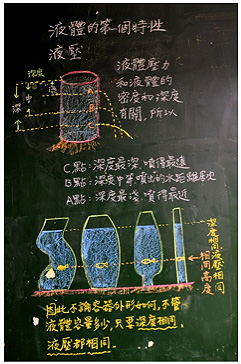 液體的第一個特性
液壓
液體壓力
和液體的
密度和深度
有關,所以
深度
淺
中
深
A
B
C
C點:深度最深,噴得最遠
B點:深度中等,噴出的水距離居次
A點:深度最淺,噴得最近
深度相同,液壓相同
相同高度
因此不論容器外形如何,不管
液體容量多少,只要深度相同,
液壓都相同。